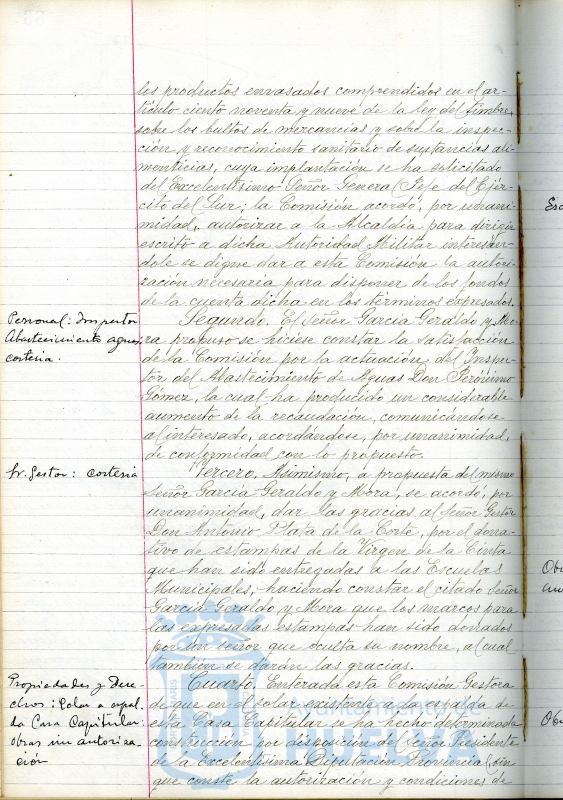 los productos envasados comprendidos en el ar-
tículo ciento noventa y nueve de la ley del timbre,
sobre los bultos de mercancías y sobre la inspec-
ción y reconocimiento sanitario de sustancias ali-
menticias, cuya implantación se ha solicitado
del Excelentísimo Señor General Jefe del Ejér-
cito del Sur; la Comisión acordó, por unani-
midad, autorizar a la Alcaldía para dirigir
escrito a dicha Autoridad Militar interesán-
dole se digne dar a esta Comisión la autori-
zación necesaria para disponer de los fondos
de la cuenta dicha en los términos expresados.
Personal: Inspector
Abastecimiento aguas
cortesía.
Segundo. El señor García Geraldo y Mo-
ra propuso se hiciese constar la satisfacción
de la Comisión por la actuación del Inspec-
tor del Abastecimiento de Aguas Don Jerónimo
Gómez, la cual ha producido un considerable
aumento de la recaudación, comunicándose
al interesado, acordándose, por unanimidad,
de conformidad con lo propuesto.
Sr. Gestor: cortesía
Tercero. Asimismo, a propuesta del mismo
Señor García Geraldo y Mora, se acordó, por
unanimidad, dar las gracias al Señor Gestor
Don Antonio Plata de la Corte, por el dona-
tivo de estampas de la Virgen de la Cinta
que han sido entregadas a las Escuelas
Municipales, haciendo constar el citado Señor
García Geraldo y Mora que los marcos para
las expresadas estampas han sido donados
por un señor que oculta su nombre, al cual
también se darán las gracias.
Propiedades y Dere-
chos: Solar a espal-
da Casa Capitular:
obras sin autoriza-
ción
Cuarto. Enterada esta Comisión Gestora
de que en el solar existente a la espalda de
esta Casa Capitular se ha hecho determinada
construcción por disposición del Señor Presidente
de la Excelentísima Diputación Provincial, sin
que conste la autorización y condiciones de
HUELVA